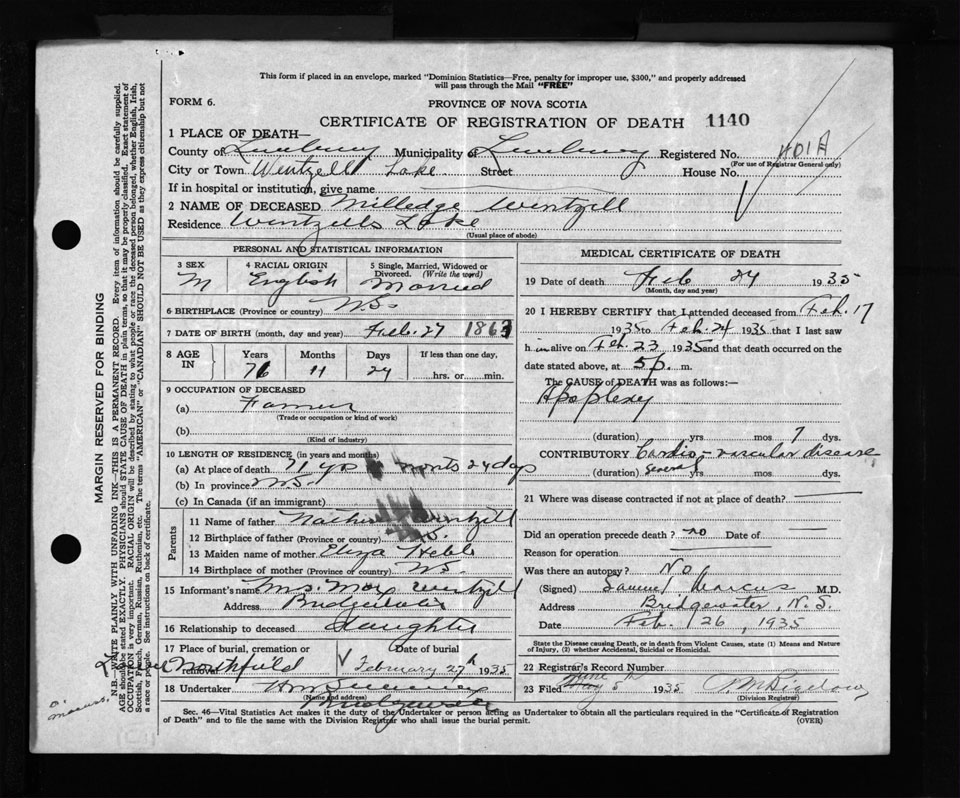 This form if placed in an envelope, marked "Dominion Statistics—Free, penalty for improper use, $300," and properly addressed
will pass through the Mail "FREE"
FORM 6.
PROVINCE OF NOVA SCOTIA
CERTIFICATE OF REGISTRATION OF DEATH 1140
1 PLACE OF DEATH—
County of Lunenburg Municipality of Lunenburg Registered No. 401A
(For use of Registrar General only)
City or Town Wentzell Lake Street House No.
If in hospital or institution, give name
2 NAME OF DECEASED Milledge Wentzell
Residence Wentzells Lake
(Usual place of abode)
PERSONAL AND STATISTICAL INFORMATION
3 SEX M
4 RACIAL ORIGIN English
5 Single, Married, Widowed or Divorced. (Write the word) Married
6 BIRTHPLACE (Province or country) N.S.
7 DATE OF BIRTH (month, day and year) Feb. 27 1863
8 AGE IN Years Months Days If less than one day,
71 11 24 hrs. or min.
9 OCCUPATION OF DECEASED
(a) Farmer
(Trade or occupation or kind of work)
(b)
(Kind of industry)
10 LENGTH OF RESIDENCE (in years and months)
(a) At place of death 71 yrs months 24 days
(b) In province N.S.
(c) In Canada (if an immigrant)
Parents
11 Name of father Wentzell
12 Birthplace of father (Province or country) N.S.
13 Maiden name of mother Eliza Hebb
14 Birthplace of mother (Province or country) N.S.
15 Informant's name Mrs. Max Wentzell
Address Bridgewater
16 Relationship to deceased Daughter
17 Place of burial, cremation or removal Northfield
Date of burial February 27th 1935
18 Undertaker
(Name and address)
Bridgewater
MEDICAL CERTIFICATE OF DEATH
19 Date of death Feb 24 1935
(Month, day and year)
20 I HEREBY CERTIFY that I attended deceased from Feb. 17
1935 to Feb. 24 1935 that I last saw
h im alive on Feb. 23 1935 and that death occurred on the
date stated above, at 5 p. m.
The CAUSE of DEATH was as follows:—
Apoplexy
(duration) yrs mos 7 dys.
CONTRIBUTORY Cardio-vascular disease
(duration) several yrs mos dys.
21 Where was disease contracted if not at place of death?
Did an operation precede death? no Date of
Reason for operation
Was there an autopsy? No
(Signed) Samuel Marcus M.D.
Address Bridgewater, N.S.
Date Feb. 26, 1935
State the Disease causing Death, or in death from Violent Causes, state (1) Means and Nature
of Injury, (2) whether Accidental, Suicidal or Homicidal.
22 Registrar's Record Number
23 Filed June 5 1935
(Division Registrar)
Sec. 46—Vital Statistics Act makes it the duty of the Undertaker or person acting as Undertaker to obtain all the particulars required in the "Certificate of Registration
of Death" and to file the same with the Division Registrar who shall issue the burial permit. (OVER)
MARGIN RESERVED FOR BINDING
N.B.—WRITE PLAINLY WITH UNFADING INK—THIS IS A PERMANENT RECORD. Every item of information should be carefully supplied.
AGE should be stated EXACTLY. PHYSICIANS should STATE CAUSE OF DEATH in plain terms, so that it may be properly classified. Exact statement of
OCCUPATION is very important. RACIAL ORIGIN will be described by stating to what people or race the deceased person belonged, whether English, Irish,
Scottish, French, German, Russian, Ruthenian, etc. The terms "AMERICAN" or "CANADIAN" SHOULD NOT BE USED as they express citizenship but not
a race or people. See instructions on back of certificate.